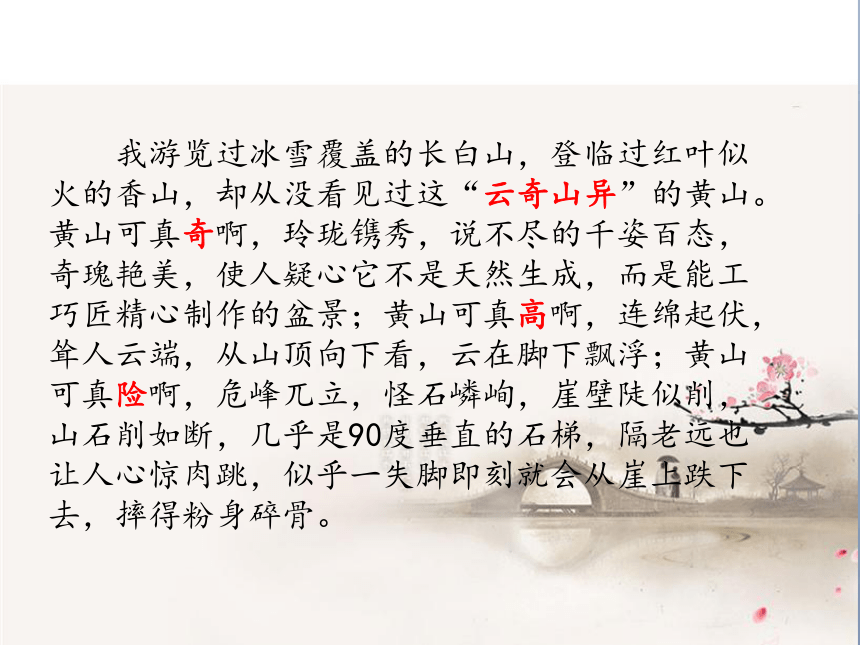 我游览过冰雪覆盖的长白山，登临过红叶似
火的香山，却从没看见过这“云奇山异”的黄山。
黄山可真奇啊，玲珑镌秀，说不尽的千姿百态，
奇瑰艳美，使人疑心它不是天然生成，而是能工
巧匠精心制作的盆景；黄山可真高啊，连绵起伏，
耸人云端，从山顶向下看，云在脚下飘浮；黄山
可真险啊，危峰兀立，怪石嶙峋，崖壁陡似削，
山石削如断，几乎是90度垂直的石梯，隔老远也
让人心惊肉跳，似乎一失脚即刻就会从崖上跌下
去，摔得粉身碎骨。